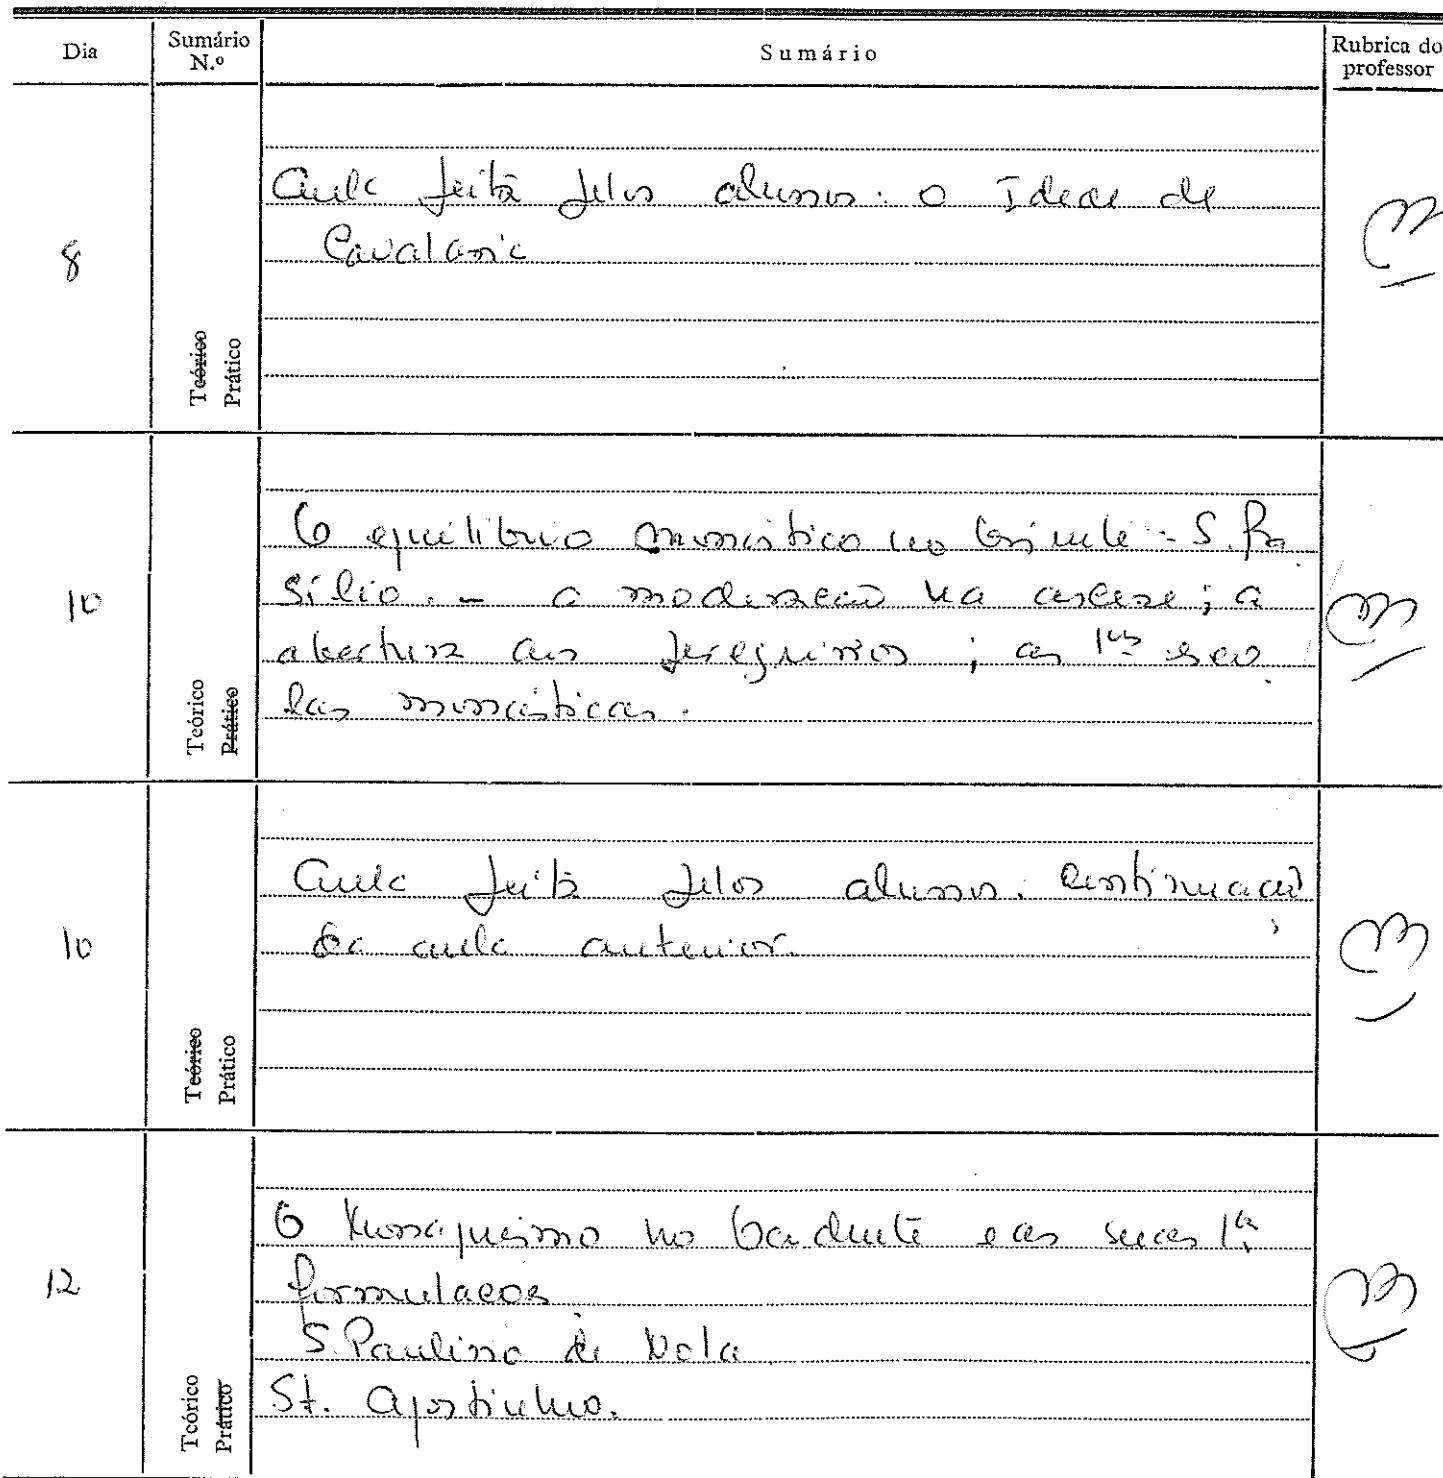 Dia
Sumário N.º
Sumário
Rubrica do professor
8
Teórico
Prático
Aula feita pelos alunos: o Ideal de
Cavalaria
10
Teórico
Prático
O equilíbrio monástico no Oriente - S. Ba
sílio. - a moderação na ascese; a
abertura aos peregrinos; as 1as esco
las monásticas.
10
Teórico
Prático
Aula feita pelos alunos. Continuação
da aula anterior.
12
Teórico
Prático
O Monaquismo no Ocidente e as suas 1as
formulações
S. Paulino de Nola
St. Agostinho.